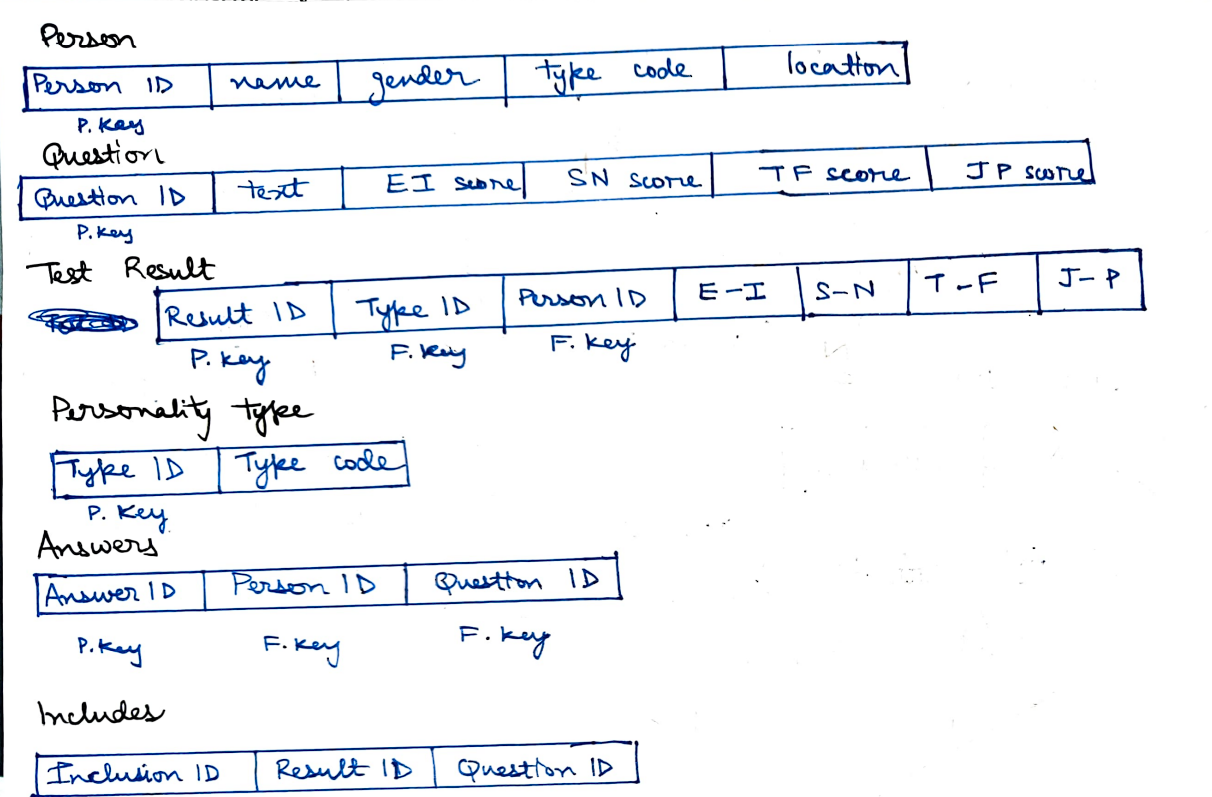 Person
Person ID name gender type code location
P. Key
Question
Question ID text EI score SN score TF score JP score
P. Key
Test Result
Result ID Type ID Person ID E-I S-N T-F J-P
P. key F. key F. key
Personality type
Type ID Type code
P. Key
Answers
Answer ID Person ID Question ID
P. key F. key F. key
Includes
Inclusion ID Result ID Question ID